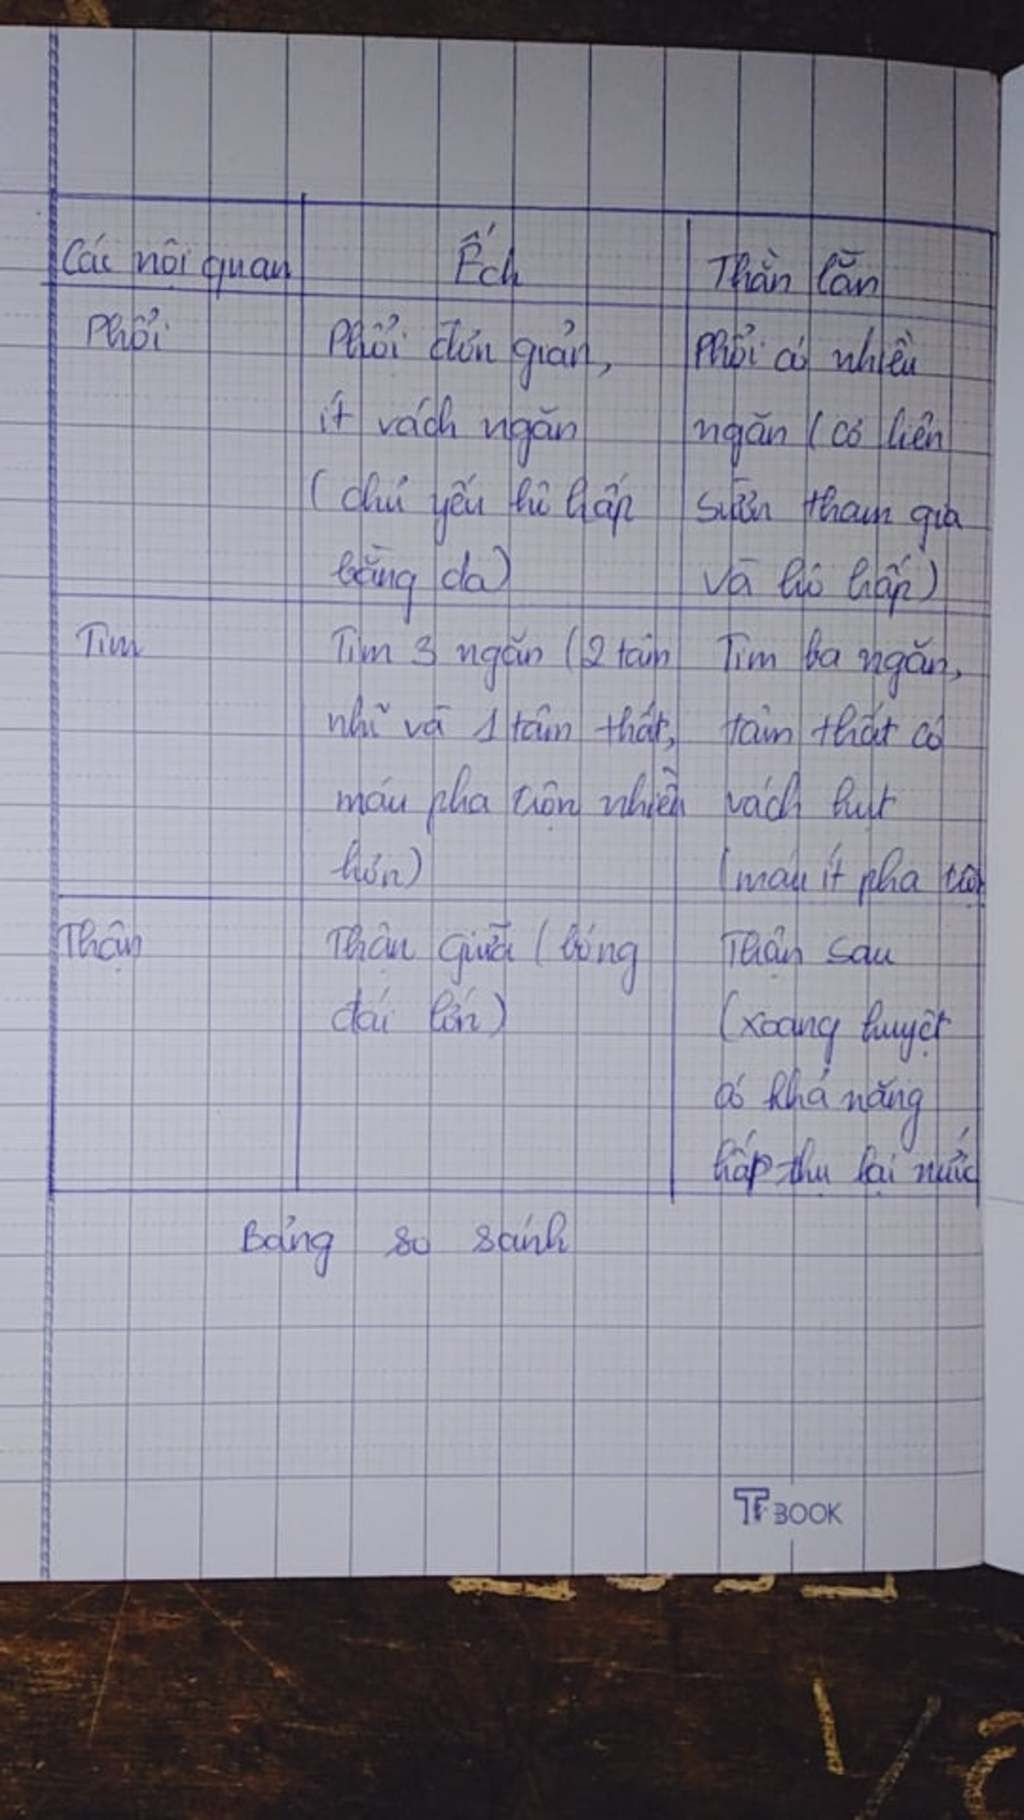 Các nội quan
Ếch
Thằn lằn
Phổi
Phổi đơn giản,
ít vách ngăn
(chủ yếu hô hấp
bằng da)
Phổi có nhiều
ngăn (có liên
sườn tham gia
và hô hấp)
Tim
Tim 3 ngăn (2 tâm
nhĩ và 1 tâm thất,
máu pha trộn nhiều
hơn)
Tim ba ngăn,
tâm thất có
vách hụt
(máu ít pha trộn
Thận
Thận giữa (bóng
đái lớn)
Thận sau
(xoang huyệt
có khả năng
hấp thu lại nước
Bảng so sánh
TP BOOK